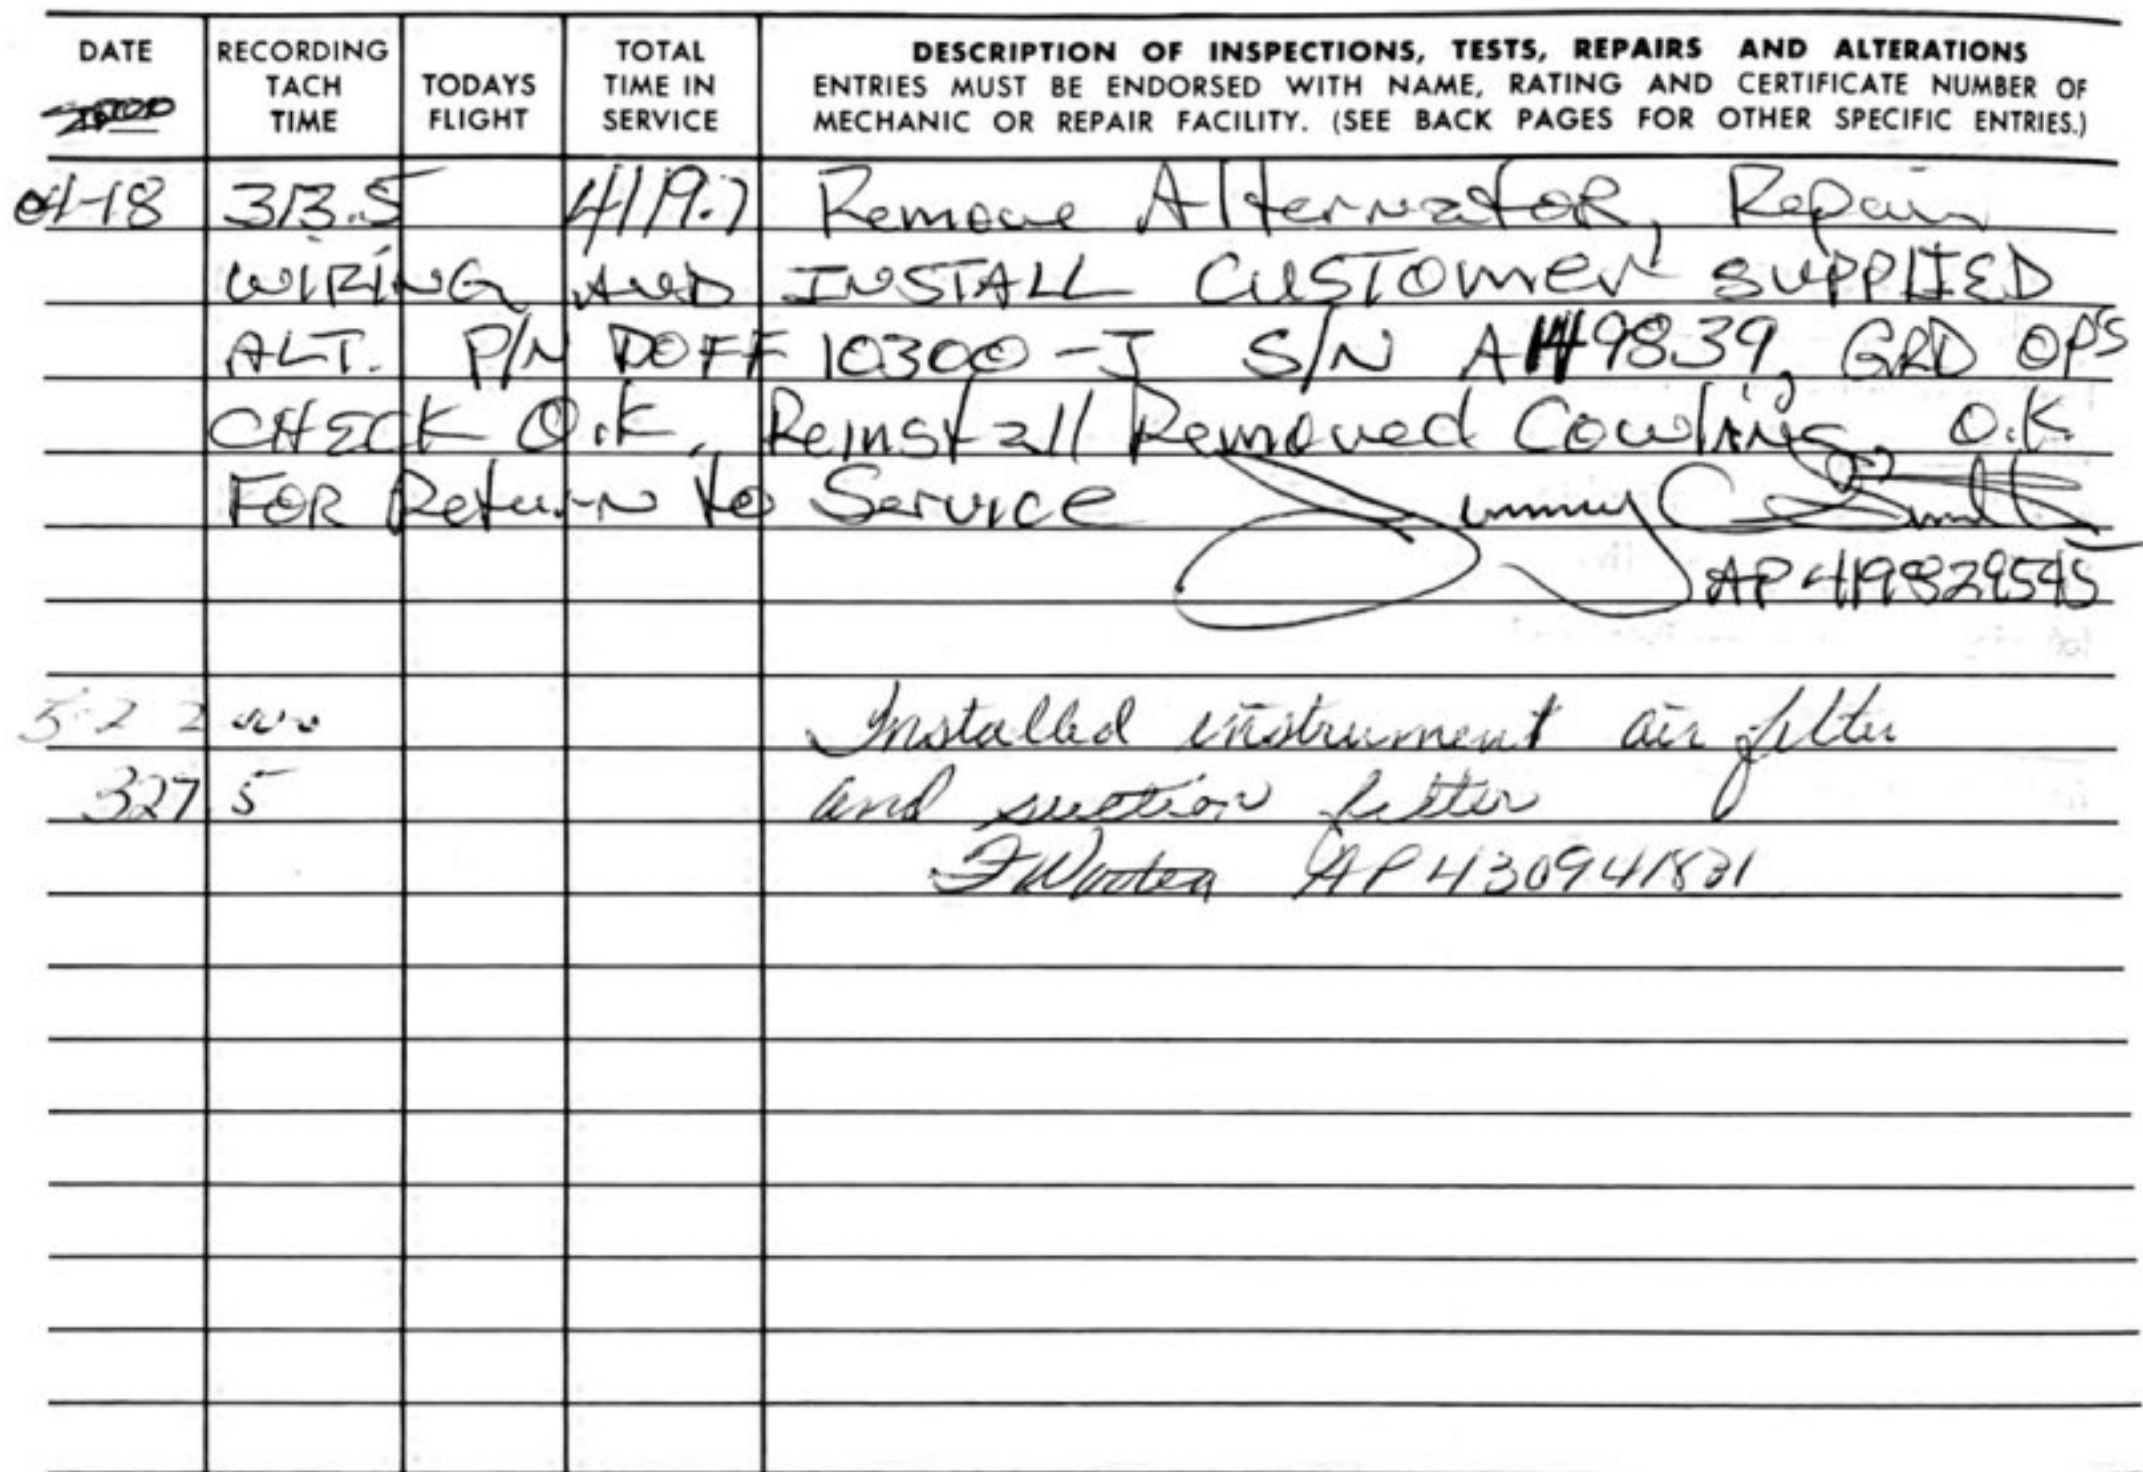 DATE RECORDING TACH TIME TODAYS FLIGHT TOTAL TIME IN SERVICE DESCRIPTION OF INSPECTIONS, TESTS, REPAIRS AND ALTERATIONS
ENTRIES MUST BE ENDORSED WITH NAME, RATING AND CERTIFICATE NUMBER OF
MECHANIC OR REPAIR FACILITY. (SEE BACK PAGES FOR OTHER SPECIFIC ENTRIES.)
04-18 313.5 4119.7 Remove Alternator, Repair
WIRING AND INSTALL CUSTOMER SUPPLIED
ALT. P/N DOFF 10300-J S/N A149839, GRD OP'S
CHECK O.K., Reinstall Removed Cowlings. O.K.
FOR Return to Service Jimmy C Smith
AP 419829545
5-2 2000 Installed instrument air filter
327 5 and suction filter
F Wooten AP 430941831